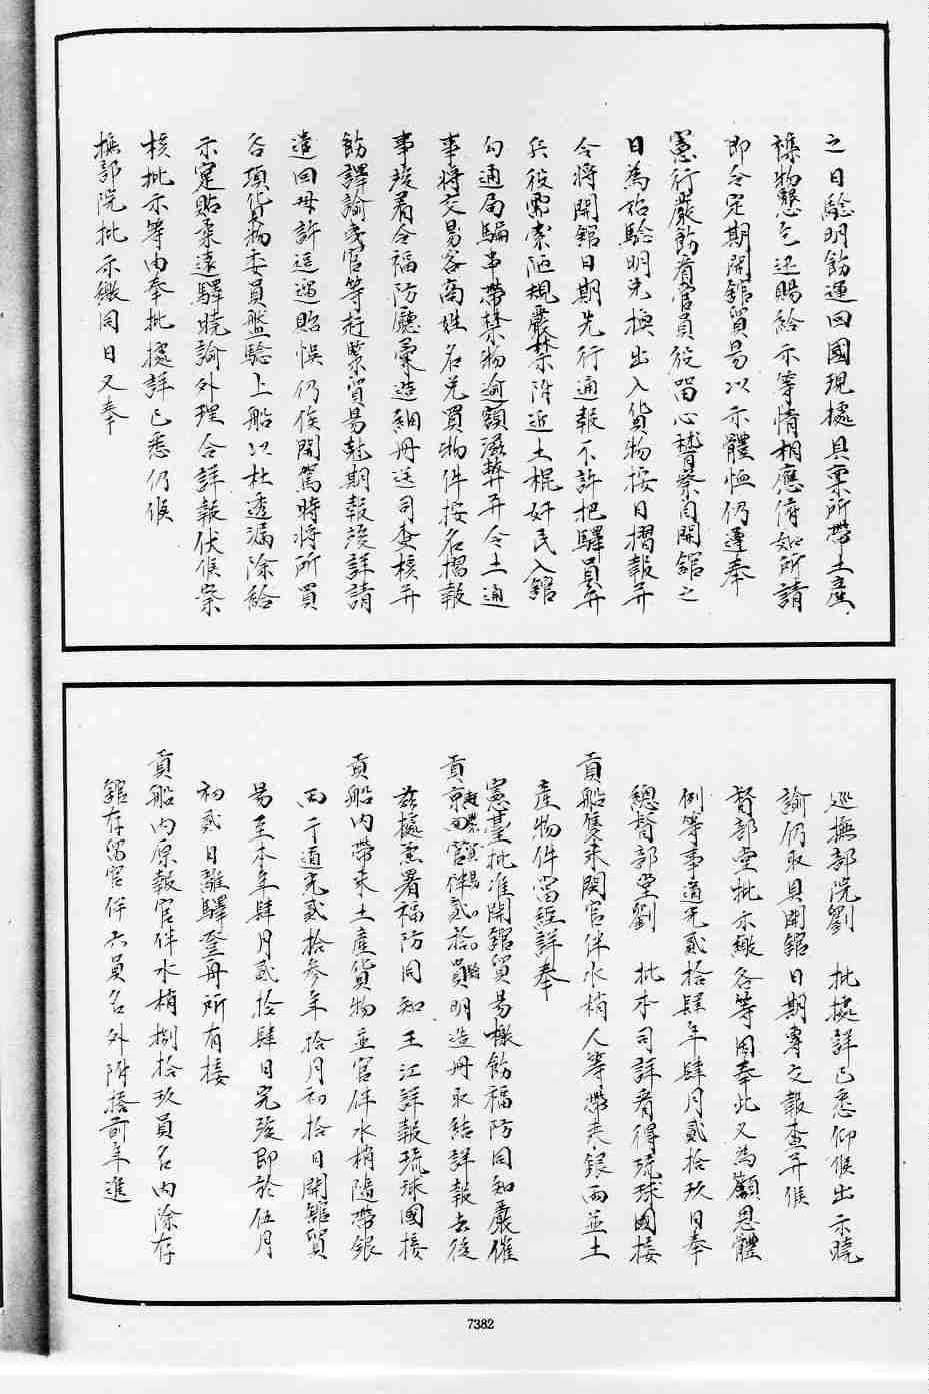 之日驗明飭運回國現據具稟所帶土產
樣物懇乞迅賜給示等情相應俯如所請
即令定期開舘貿易以示體恤仍遵奉
憲行嚴飭看官員役留心稽察自開舘之
日為始驗明先換出入貨物按日摺報并
令將開舘日期先行通報不許把驛員弁
兵役需索陋規嚴禁附近土棍奸民入舘
勾通局騙串帶禁物逾額滋弊并令土通
事將交易客商姓名兌買物件按名摺報
事竣着令福防廳彙造細冊送司查核并
飭譯諭夷官等赶緊貿易尅期報竣詳請
遣回毋許逗遛貽悞仍俟開駕時將所買
各項貨物委員盤驗上船以杜透漏除給
示定貼柔遠驛曉諭外理合詳報伏候察
核批示等由奉批據詳已悉仍候
撫部院批示繳同日又奉
巡撫部院劉　批據詳已悉仰候出示曉
諭仍取具開舘日期專文報查并候
督部堂批示繳各等因奉此又為籲恩體
例等事道光貳拾肆年肆月貳拾玖日奉
總督部堂劉　批本司詳看得琉球國接
貢船隻來閩官伴水梢人等帶來銀兩並土
產物件當經詳奉
憲臺批准開舘貿易檄飭福防同知嚴催
貢京回官伴貳拾員明造冊取結詳報去後
茲據署福防同知王江詳報琉球國接
貢船內帶來土產貨物並官伴水梢隨帶銀
兩於道光貳拾參年拾月初拾日開舘貿
易至本年肆月貳拾肆日完竣即於伍月
初貳日離驛登舟所有接
貢船內原報官伴水梢捌拾玖員名內除存
舘存留官伴六員名外附搭前年進
7382